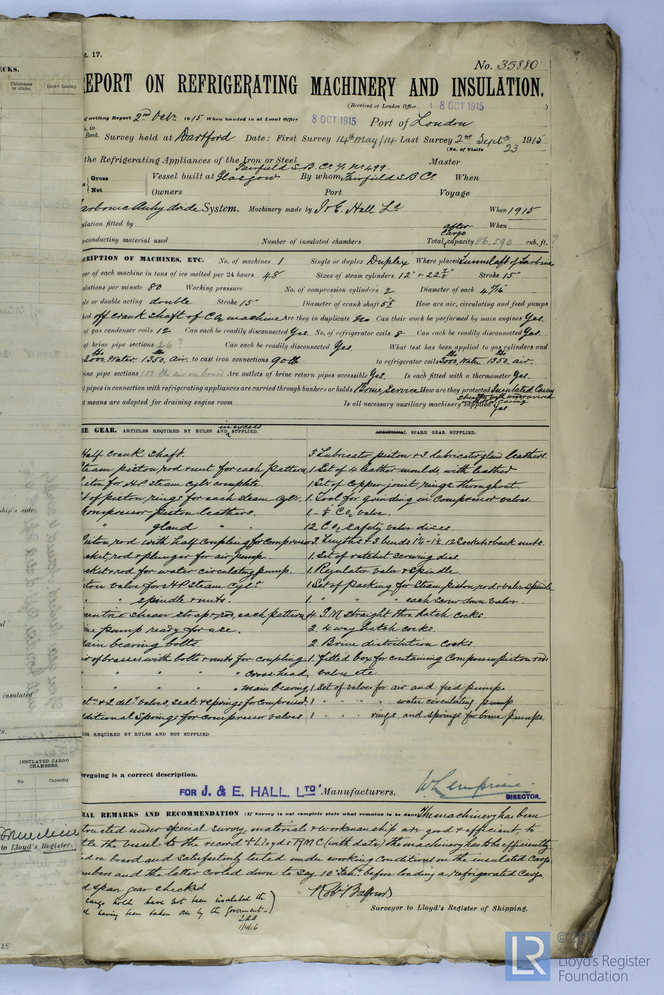 ECKS.
t. 17.
No. 35880
REPORT ON REFRIGERATING MACHINERY AND INSULATION.
(Received at London Office 8 OCT 1915)
writing Report 2nd Oct. 1915 When handed in at Local Office 8 OCT 1915 Port of London
Book. Survey held at Dartford Date: First Survey 14th May/14 Last Survey 2nd Sept. 1915
(No. of Visits 23
the Refrigerating Appliances of the Iron or Steel Master
Fairfield S.B. Co. Yd No 499
Gross Vessel built at Glasgow By whom Fairfield S.B. Co. When
Net Owners Port Voyage
Carbonic Anhydride System. Machinery made by J. & E. Hall Ld When 1915
ulation fitted by When
after Cargo
-conducting material used Number of insulated chambers Total capacity 86,590 cub. ft.
CRIPTION OF MACHINES, ETC. No. of machines 1 Single or duplex Duplex Where placed Tunnel aft of Turbine
er of each machine in tons of ice melted per 24 hours 48 Sizes of steam cylinders 12" - 22 Stroke 15"
olutions per minute 80 Working pressure No. of compression cylinders 2 Diameter of each
gle or double acting double Stroke 15" Diameter of crank shaft How are air, circulating and feed pumps
off crank shaft of CO2 machine Are they in duplicate Yes Can their work be performed by main engines Yes.
of gas condenser coils 12 Can each be readily disconnected Yes No. of refrigerator coils 8 Can each be readily disconnected Yes.
of brine pipe sections 26? Can each be readily disconnected Yes. What test has been applied to gas cylinders and
Water. 1350. Air. to cast iron connections 90 lb to refrigerator coils 3000 Water 1350. air.
ine pipe sections Are outlets of brine return pipes accessible Yes. Is each fitted with a thermometer Yes.
t pipes in connection with refrigerating appliances are carried through bunkers or holds Brine Service How are they protected Insulated Casing
t means are adopted for draining engine room Is all necessary auxiliary machinery supplied Yes.
RE GEAR. ARTICLES REQUIRED BY RULES AND SUPPLIED. ADDITIONAL SPARE GEAR SUPPLIED.
Half crank shaft. 3 Lubricator piston & 3 lubricator gland leathers.
Steam piston rod & nut for each pattern 1 Set of 4 leather moulds, with leather
iston for H.P. steam cylr complete. 1 Set of copper joint rings throughout.
t of piston rings for each steam cylr. 1 Tool for grinding in compressor valves
ompressor piston leathers. 1 - CO2 valve.
" gland " 12 CO2 safety valve discs
iston rod with half coupling for compressor 3 Lengths & 3 bends
cket, rod & plunger for air pump. 1 Set of ratchet screwing dies.
cket & rod for water circulating pump. 1 Regulator valve & Spindle.
ston valve for H.P. Steam Cylr 1 Set of packing for steam piston, rod & valve spindle
" " spindle & nuts. 1 " " " each screw down valve.
entric sheave strap & rod, each pattern 4 G.M. straight thro hatch cocks.
ne pump ready for use. 2 4 way hatch cocks.
ain bearing bolts. 2 Brine distribution cocks.
ir of brasses with bolts & nuts for coupling 1 fitted box for containing Compressor piston rods
" " " " " cross head, valves etc.
" " " " " main bearing 1 Set of valves for air and feed pumps
ct. & 2 del. valves, seats & springs for compressor. 1 " " " water circulating pump
dditional Springs for compressor valves 1 " " rings and springs for brine pumps.
LES REQUIRED BY RULES AND NOT SUPPLIED.
oregoing is a correct description.
FOR J. & E. HALL, LTD Manufacturers.
DIRECTOR.
RAL REMARKS AND RECOMMENDATION (If Survey is not complete state what remains to be done) The machinery has been
tructed under special survey, materials & workmanship are good & efficient, to
le the vessel to the record & Lloyds RMC (with date) the machinery has to be efficiently
d on board and satisfactorily tested under working conditions on the insulated Cargo
mbers and the latter cooled down to say 10° Fah. before loading a refrigerated Cargo
d spare gear checked
cargo holds have not been insulated the
having been taken over by the Government.
Robt Balfour
Surveyor to Lloyd's Register of Shipping.
hip's side
insulated
INSULATED CARGO CHAMBERS.
No. Capacity
to Lloyd's Register.
LR
Lloyd's Register
Foundation